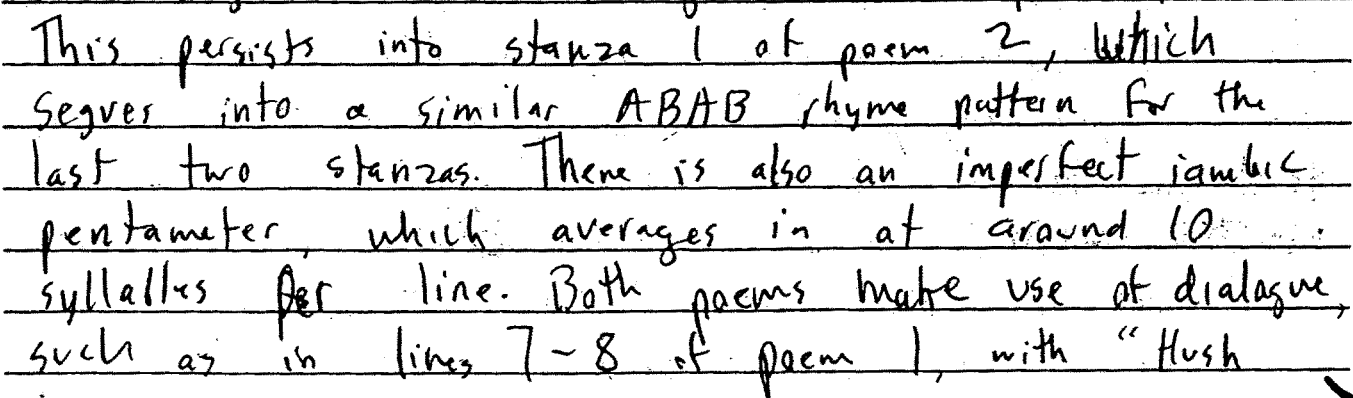 This persists into stanza 1 of poem 2, which
segues into a similar ABAB rhyme pattern for the
last two stanzas. There is also an imperfect iambic
pentameter, which averages in at around 10
syllables per line. Both poems make use of dialogue,
such as in lines 7-8 of poem 1, with "Hush